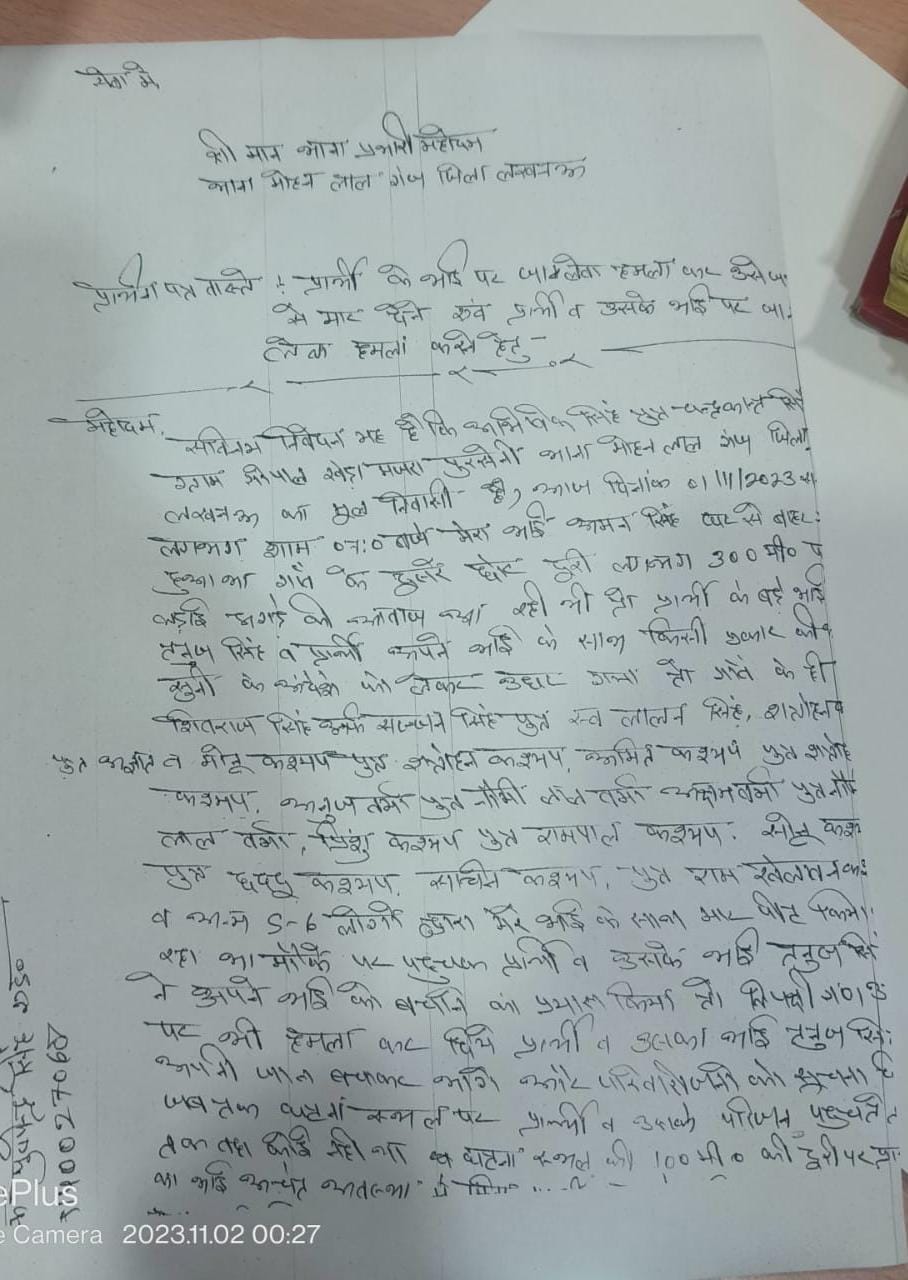 सेवा में
श्री मान थाना प्रभारी महोदय
थाना मोहन लाल गंज जिला लखनऊ
प्रार्थना पत्र वास्ते :- प्रार्थी के भाई पर जानलेवा हमला कर उसे
से मार देने एवं प्रार्थी व उसके भाई पर
हमला करने हेतु -
महोदय,
सविनय निवेदन यह है कि अभिषेक सिंह पुत्र चन्द्रकान्त
ग्राम खेड़ा मजरा पुरसेनी थाना मोहन लाल गंज जिला
लखनऊ का मूल निवासी है, आज दिनांक 01/11/2023
लगभग शाम 07:0 बजे मेरा भाई अमन सिंह घर से बाहर
हुआ था गाँव के दूसरे छोर दूरी लगभग 300 मी०
लड़ाई झगड़े की आवाज आ रही थी प्रार्थी के बड़े भाई
तनुज सिंह व प्रार्थी अपने भाई के साथ किसी प्रकार की
के अंदेशे को लेकर उधर गया तो गाँव के ही
शिवराज सिंह उर्फ सज्जन सिंह पुत्र स्व लालन सिंह,
पुत्र अज्ञात व मोनू कश्यप पुत्र कश्यप, अमित कश्यप पुत्र
कश्यप, अनुज वर्मा पुत्र नौमी लाल वर्मा वर्मा पुत्र
लाल वर्मा, कश्यप पुत्र रामपाल कश्यप. सोनू
पुत्र कश्यप, सचिन कश्यप, पुत्र राम
व अन्य 5-6 लोगों द्वारा मेरे भाई के साथ मार पीट
रहा था मौके पर पहुचकर प्रार्थी व उसके भाई तनुज
ने अपने भाई को बचाने का प्रयास किया तो विपक्षी
पर भी हमला कर दिये प्रार्थी व उसका भाई तनुज
अपनी जान बचाकर भागे और परिवारीजनों को सूचना
जब तक घटना स्थल पर प्रार्थी व उसके परिजन पहुचते
तक वहा कोई नही था घटना स्थल की 100 मी० की दूरी पर
का भाई अचेत अवस्था
ePlus
Camera 2023.11.02 00:27